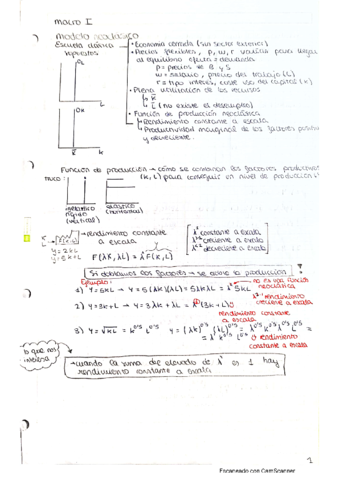 MACRO I
Modelo neoclásico
Escuela clásica
supuestos
• Economía cerrada (sin sector exterior)
• Precios flexibles, p, w, r varían para llegar
al equilibrio oferta = demanda
p = precios de B y S
w = salario, precio del trabajo (L)
r = tipo interés, coste del capital (K)
• Plena utilización de los recursos
K
L (no existe el desempleo)
• Función de producción neoclásica
→ Rendimiento constante a escala
→ Productividad marginal de los factores positiva
y decreciente.
Función de producción → cómo se combinan los factores productivos
(K, L) para conseguir un nivel de producción
rígido
(vertical)
elástico
(horizontal)
→ rendimiento constante
a escala
F(λK, λL) = λF(K, L)
λ¹ constante a escala
creciente a escala
decreciente a escala
Si doblamos los factores → se dobla la producción
Ejemplos:
1) Y = 5KL → Y = 5(λK)(λL) = 5λKλL = λ² 5KL
no es una función
neoclásica
rendimiento
creciente a escala
2) Y = 3K + L → Y = 3λK + λL = λ(3K + L)
rendimiento constante
a escala
3) Y = √KL = K^0'5 L^0'5 Y = (λK)^0'5 (λL)^0'5 = λ^0'5 K^0'5 λ^0'5 L^0'5 =
= λ¹ K^0'5 L^0'5
rendimiento
constante a escala
lo que nos
interesa
→ cuando la suma del elevado de λ es 1 hay
rendimiento constante a escala
1
Escaneado con CamScanner